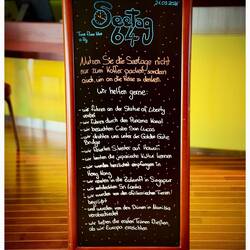 21.03.2024
Seetag
64
Nutzen Sie die Seetage nicht
nur zum Koffer packen, sondern
auch um an die Reise zu denken.
Wir helfen gerne:
- wir fuhren an der Statue of Liberty
vorbei
- wir fuhren durch den Panama Kanal
- wir besuchten Cabo San Lucas
- wir unter der Golden Gate
Bridge
- wir Silvester auf Hawaii
- wir die japanische Kultur kennen
- wir wurden herzlichst empfangen in
Hong Kong
- wir in die Zukunft in Singapur
- wir entdeckten Sri Lanka
- wir wurden von den afrikanischen Tieren
begrüßt
- und wurden von den Dünen in Namibia
verabschiedet
- wir ließen die ersten Tränen fließen,
als wir Europa erreichten